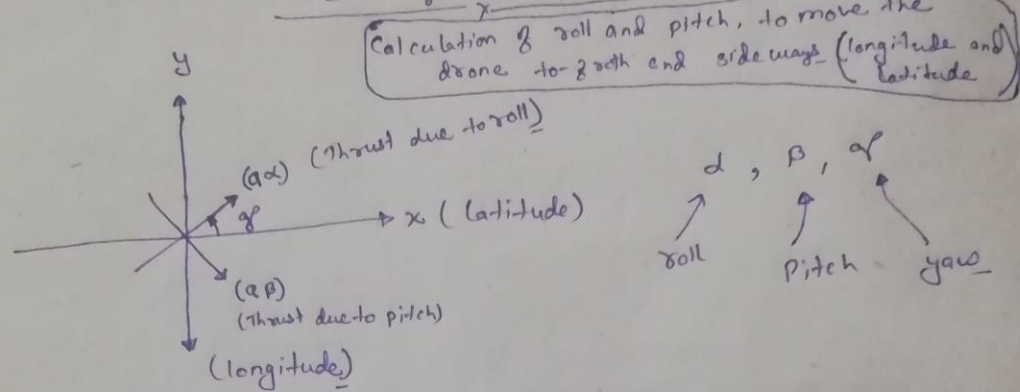 x
Calculation of roll and pitch, to move the
drone to-&-froth and sideways (longitude and
latitude
y
(aα) (Thrust due to roll)
γ
x (latitude)
(aβ)
(Thrust due to pitch)
(longitude)
α, β, γ
roll
Pitch
yaw